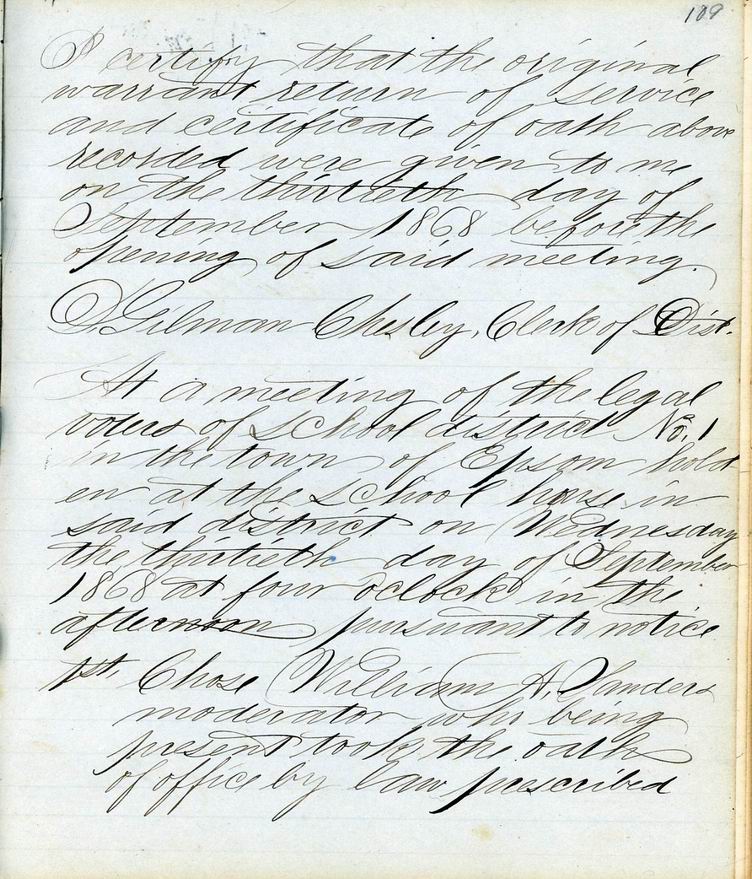 109
I certify that the original
warrant return of service
and certificate of oath above
recorded were given to me
on the thirtieth day of
September 1868 before the
opening of said meeting.
D. Gilman Chesley, Clerk of Dist.
At a meeting of the legal
voters of school district No. 1
in the town of Epsom hold
en at the school house in
said district on Wednesday
the thirtieth day of September
1868 at four oclock in the
afternoon pursuant to notice
1st Chose William A. Sanders
moderator who being
present took the oath
of office by law prescribed